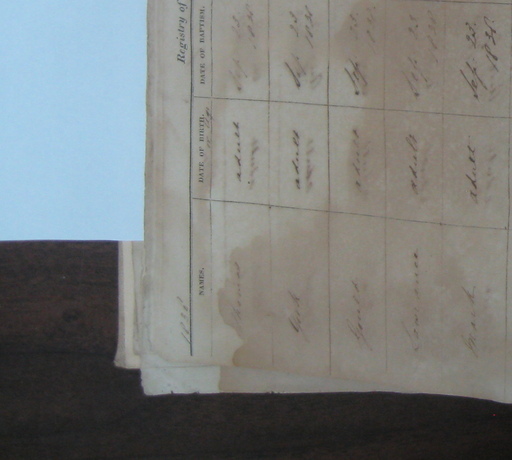 1838
Registry of
NAMES. DATE OF BIRTH. DATE OF BAPTISM.
or Age
Thomas adult Sep. 23.
1838.
York adult Sep. 23.
1838
Gould adult Sep. 23.
1838.
Lawrence adult Sep. 23
1838.
Mark adult Sep. 23.
1838.